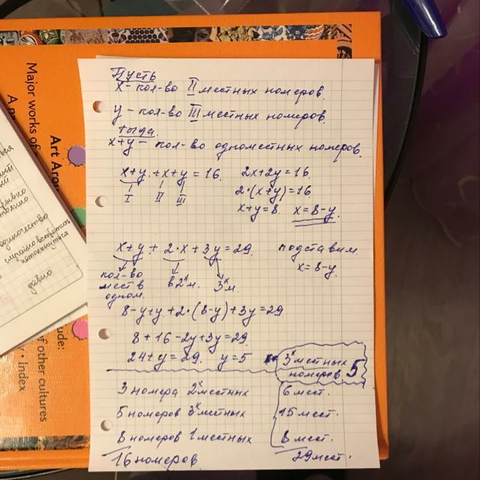 Пусть
x - кол-во II местных номеров.
y - кол-во III местных номеров.
тогда
x+y - кол-во одноместных номеров.
x+y+x+y=16.
I II III
2x+2y=16.
2·(x+y)=16
x+y=8. x=8-y.
x+y+2·x+3y=29.
кол-во
мест в
одном.
в 2х м.
3х м.
подставим
x=8-y.
8-y+y+2·(8-y)+3y=29
8+16-2y+3y=29.
24+y=29. y=5
3х местных
номеров 5
3 номера 2х местных
6 мест.
5 номеров 3х местных
15 мест.
8 номеров 1 местных
8 мест.
16 номеров
29 мест.
Major works of
Art Aro
of other cultures
Index
давно